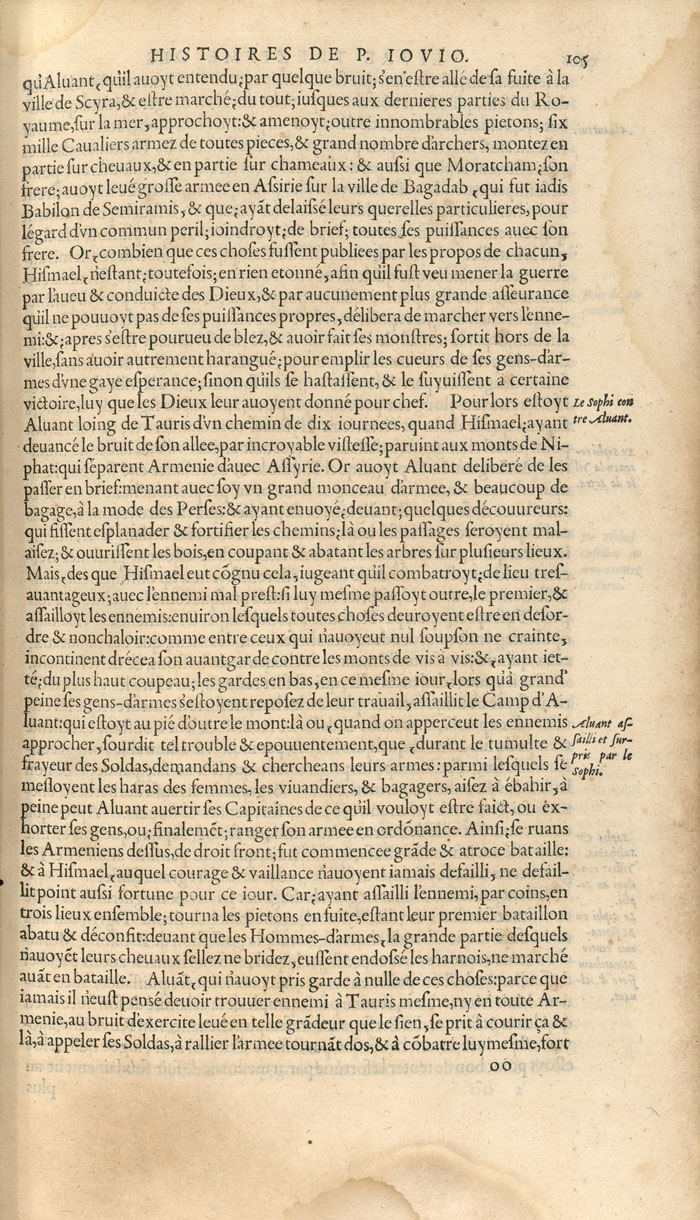 HISTOIRES DE P. IOVIO. 105
qu'Aluant, qu'il auoyt entendu; par quelque bruit; s'en estre allé de sa fuite à la
ville de Scyra, & estre marché; du tout; iusques aux dernieres parties du Ro-
yaume, sur la mer, approchoyt: & amenoyt; outre innombrables pietons; six
mille Caualiers armez de toutes pieces, & grand nombre d'archers, montez en
partie sur cheuaux, & en partie sur chameaux: & aussi que Moratcham; son
frere; auoyt leué grosse armee en Assirie sur la ville de Bagadab, qui fut iadis
Babilon de Semiramis, & que; ayāt delaissé leurs querelles particulieres, pour
l'égard d'vn commun peril; ioindroyt; de brief; toutes ses puissances auec son
frere. Or, combien que ces choses fussent publiees par les propos de chacun,
Hismael, n'estant; toutefois; en rien etonné, afin qu'il fust veu mener la guerre
par l'aueu & conduicte des Dieux, & par aucunement plus grande asseurance
qu'il ne pouuoyt pas de ses puissances propres, délibera de marcher vers l'enne-
mi: &; apres s'estre pourueu de blez, & auoir fait ses monstres; sortit hors de la
ville, sans auoir autrement harangué; pour emplir les cueurs de ses gens-d'ar-
mes d'vne gaye esperance; sinon qu'ils se hastassent, & le suyuissent a certaine
victoire, luy que les Dieux leur auoyent donné pour chef. Pour lors estoyt
Le Sophi con
tre Aluant.
Aluant loing de Tauris d'vn chemin de dix iournees, quand Hismael; ayant
deuancé le bruit de son allee, par incroyable vistesse; paruint aux monts de Ni-
phat: qui separent Armenie d'auec Assyrie. Or auoyt Aluant deliberé de les
passer en brief: menant auec soy vn grand monceau d'armee, & beaucoup de
bagage, à la mode des Perses: & ayant enuoyé; deuant; quelques découureurs:
qui fissent esplanader & fortifier les chemins; là ou les passages seroyent mal-
aisez; & ouurissent les bois, en coupant & abatant les arbres sur plusieurs lieux.
Mais, des que Hismael eut cōgnu cela, iugeant qu'il combatroyt; de lieu tres-
auantageux; auec l'ennemi mal prest: si luy mesme passoyt outre, le premier, &
assailloyt les ennemis: enuiron lesquels toutes choses deuroyent estre en desor-
dre & nonchaloir: comme entre ceux qui n'auoyeut nul soupson ne crainte,
incontinent drécea son auantgarde contre les monts de vis à vis: &, ayant iet-
té; du plus haut coupeau; les gardes en bas, en ce mesme iour, lors qu'à grand'
peine ses gens-d'armes s'estoyent reposez de leur trauail, assaillit le Camp d'A-
luant: qui estoyt au pié d'outre le mont: là ou, quand on apperceut les ennemis
Aluant as-
sailli et sur-
pris par le
Sophi.
approcher, sourdit tel trouble & epouuentement, que, durant le tumulte &
frayeur des Soldas, demandans & chercheans leurs armes: parmi lesquels se
mesloyent les haras des femmes, les viuandiers, & bagagers, aisez à ébahir, à
peine peut Aluant auertir ses Capitaines de ce qu'il vouloyt estre faict, ou ex-
horter ses gens, ou; finalemēt; ranger son armee en ordōnance. Ainsi; se ruans
les Armeniens dessus, de droit front; fut commencee grāde & atroce bataille:
& à Hismael, auquel courage & vaillance n'auoyent iamais defailli, ne defail-
lit point aussi fortune pour ce iour. Car; ayant assailli l'ennemi, par coins, en
trois lieux ensemble; tourna les pietons en fuite, estant leur premier bataillon
abatu & déconfit: deuant que les Hommes-d'armes, la grande partie desquels
n'auoyēt leurs cheuaux sellez ne bridez, eussent endossé les harnois, ne marché
auāt en bataille. Aluāt, qui n'auoyt pris garde à nulle de ces choses: parce que
iamais il n'eust pensé deuoir trouuer ennemi à Tauris mesme, ny en toute Ar-
menie, au bruit d'exercite leué en telle grādeur que le sien, se prit à courir ça &
là, à appeler ses Soldas, à rallier l'armee tournāt dos, & à cōbatre luymesme, fort
oo